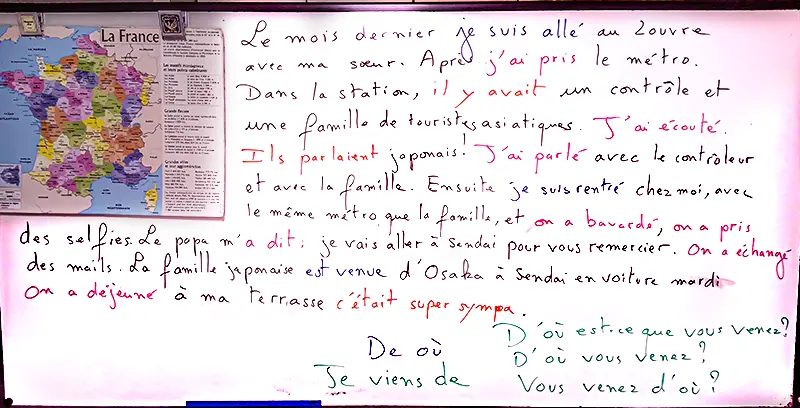 La France
Le mois dernier je suis allé au Louvre
avec ma sœur. Après j'ai pris le métro.
Dans la station, il y avait un contrôle et
une famille de touristes asiatiques. J'ai écouté.
Ils parlaient japonais! J'ai parlé avec le contrôleur
et avec la famille. Ensuite je suis rentré chez moi, avec
le même métro que la famille, et on a bavardé, on a pris
des selfies. Le papa m'a dit: je vais aller à Sendai pour vous remercier. On a échangé
des mails. La famille japonaise est venue d'Osaka à Sendai en voiture mardi
On a déjeuné à ma terrasse c'était super sympa.
D'où est-ce que vous venez?
De où D'où vous venez?
Je viens de Vous venez d'où?